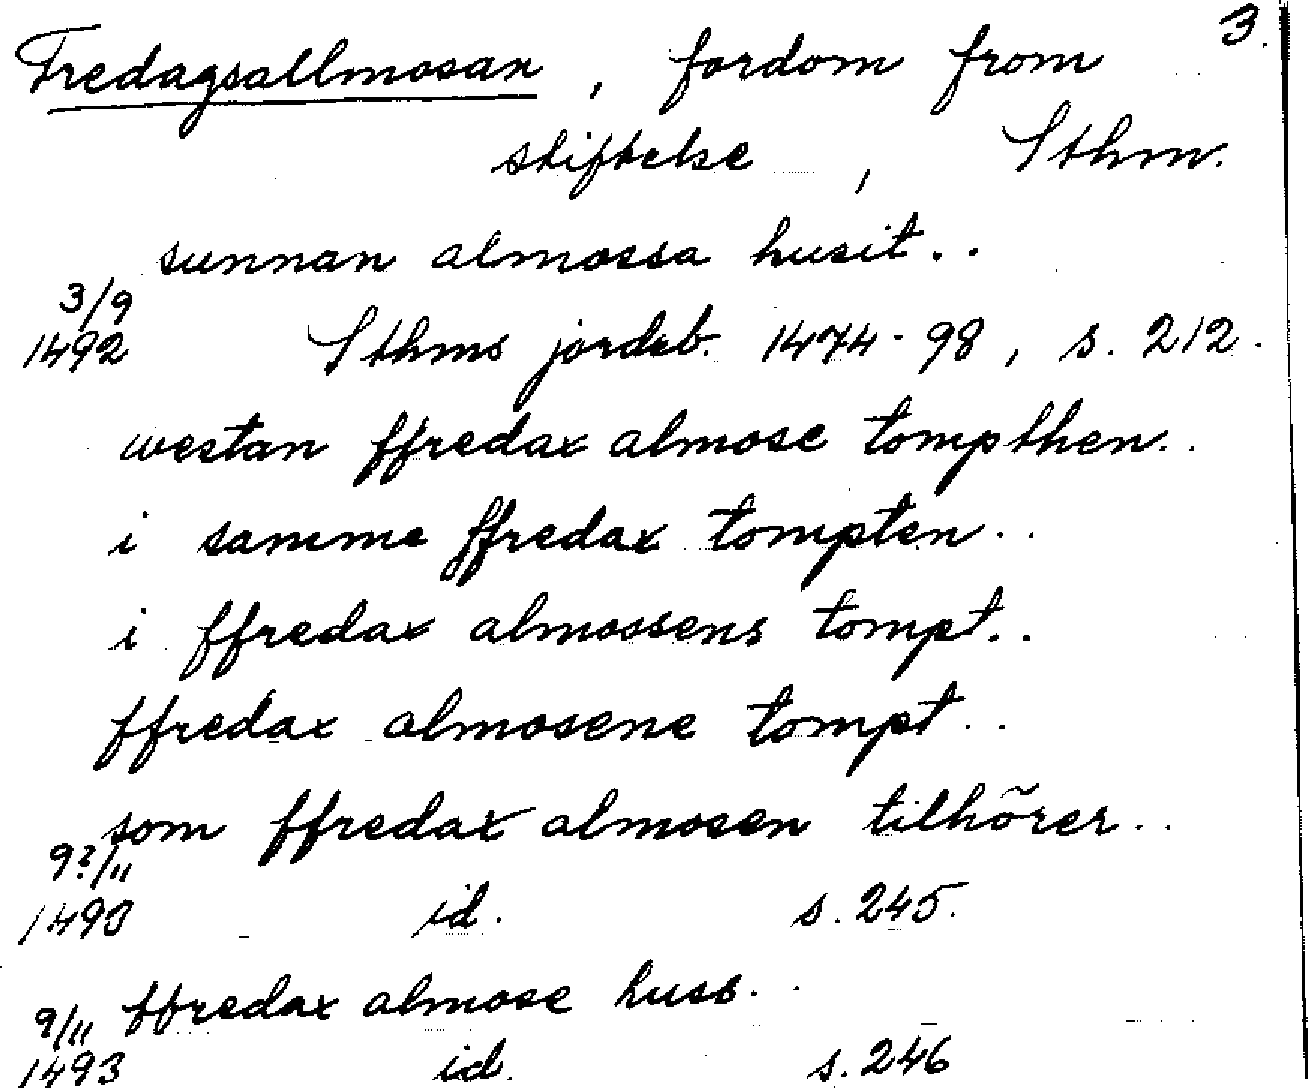 3.
Fredagsallmosan, fordom from
stiftelse, Sthm.
sunnan almossa husit..
3/9
1492 Sthms jordeb. 1474-98, s. 212.
westan ffredax almose tompthen..
i samme ffredax tompten..
i ffredax almossens tompt..
ffredax almosene tompt..
som ffredax almosen tilhõrer..
9?/11
1493 id. s. 245.
ffredax almose huss..
9/11
1493 id. s. 246